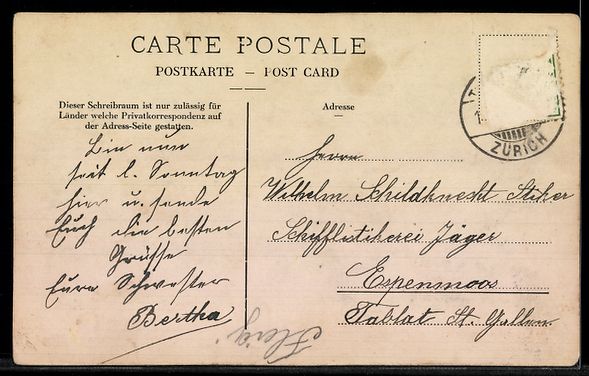 CARTE POSTALE
POSTKARTE – POST CARD
Dieser Schreibraum ist nur zulässig für
Länder welche Privatkorrespondenz auf
der Adress-Seite gestatten.
Adresse
Bin nun
seit l. Sonntag
hier u. sende
Euch die besten
Grüsse
Eure Schwester
Bertha
Herrn
Wilhelm Schildknecht Sticker
Schifflistikerei Jäger
Espenmoos
Tablat St. Gallen
ZÜRICH